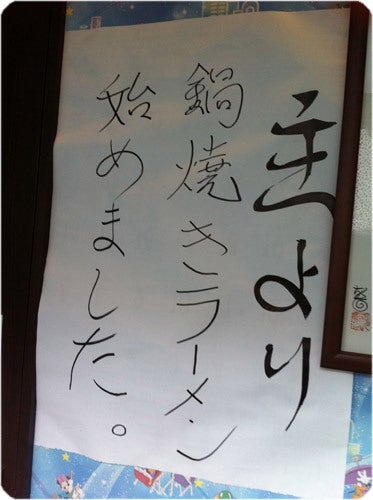 より
鍋焼きラーメン
始めました。